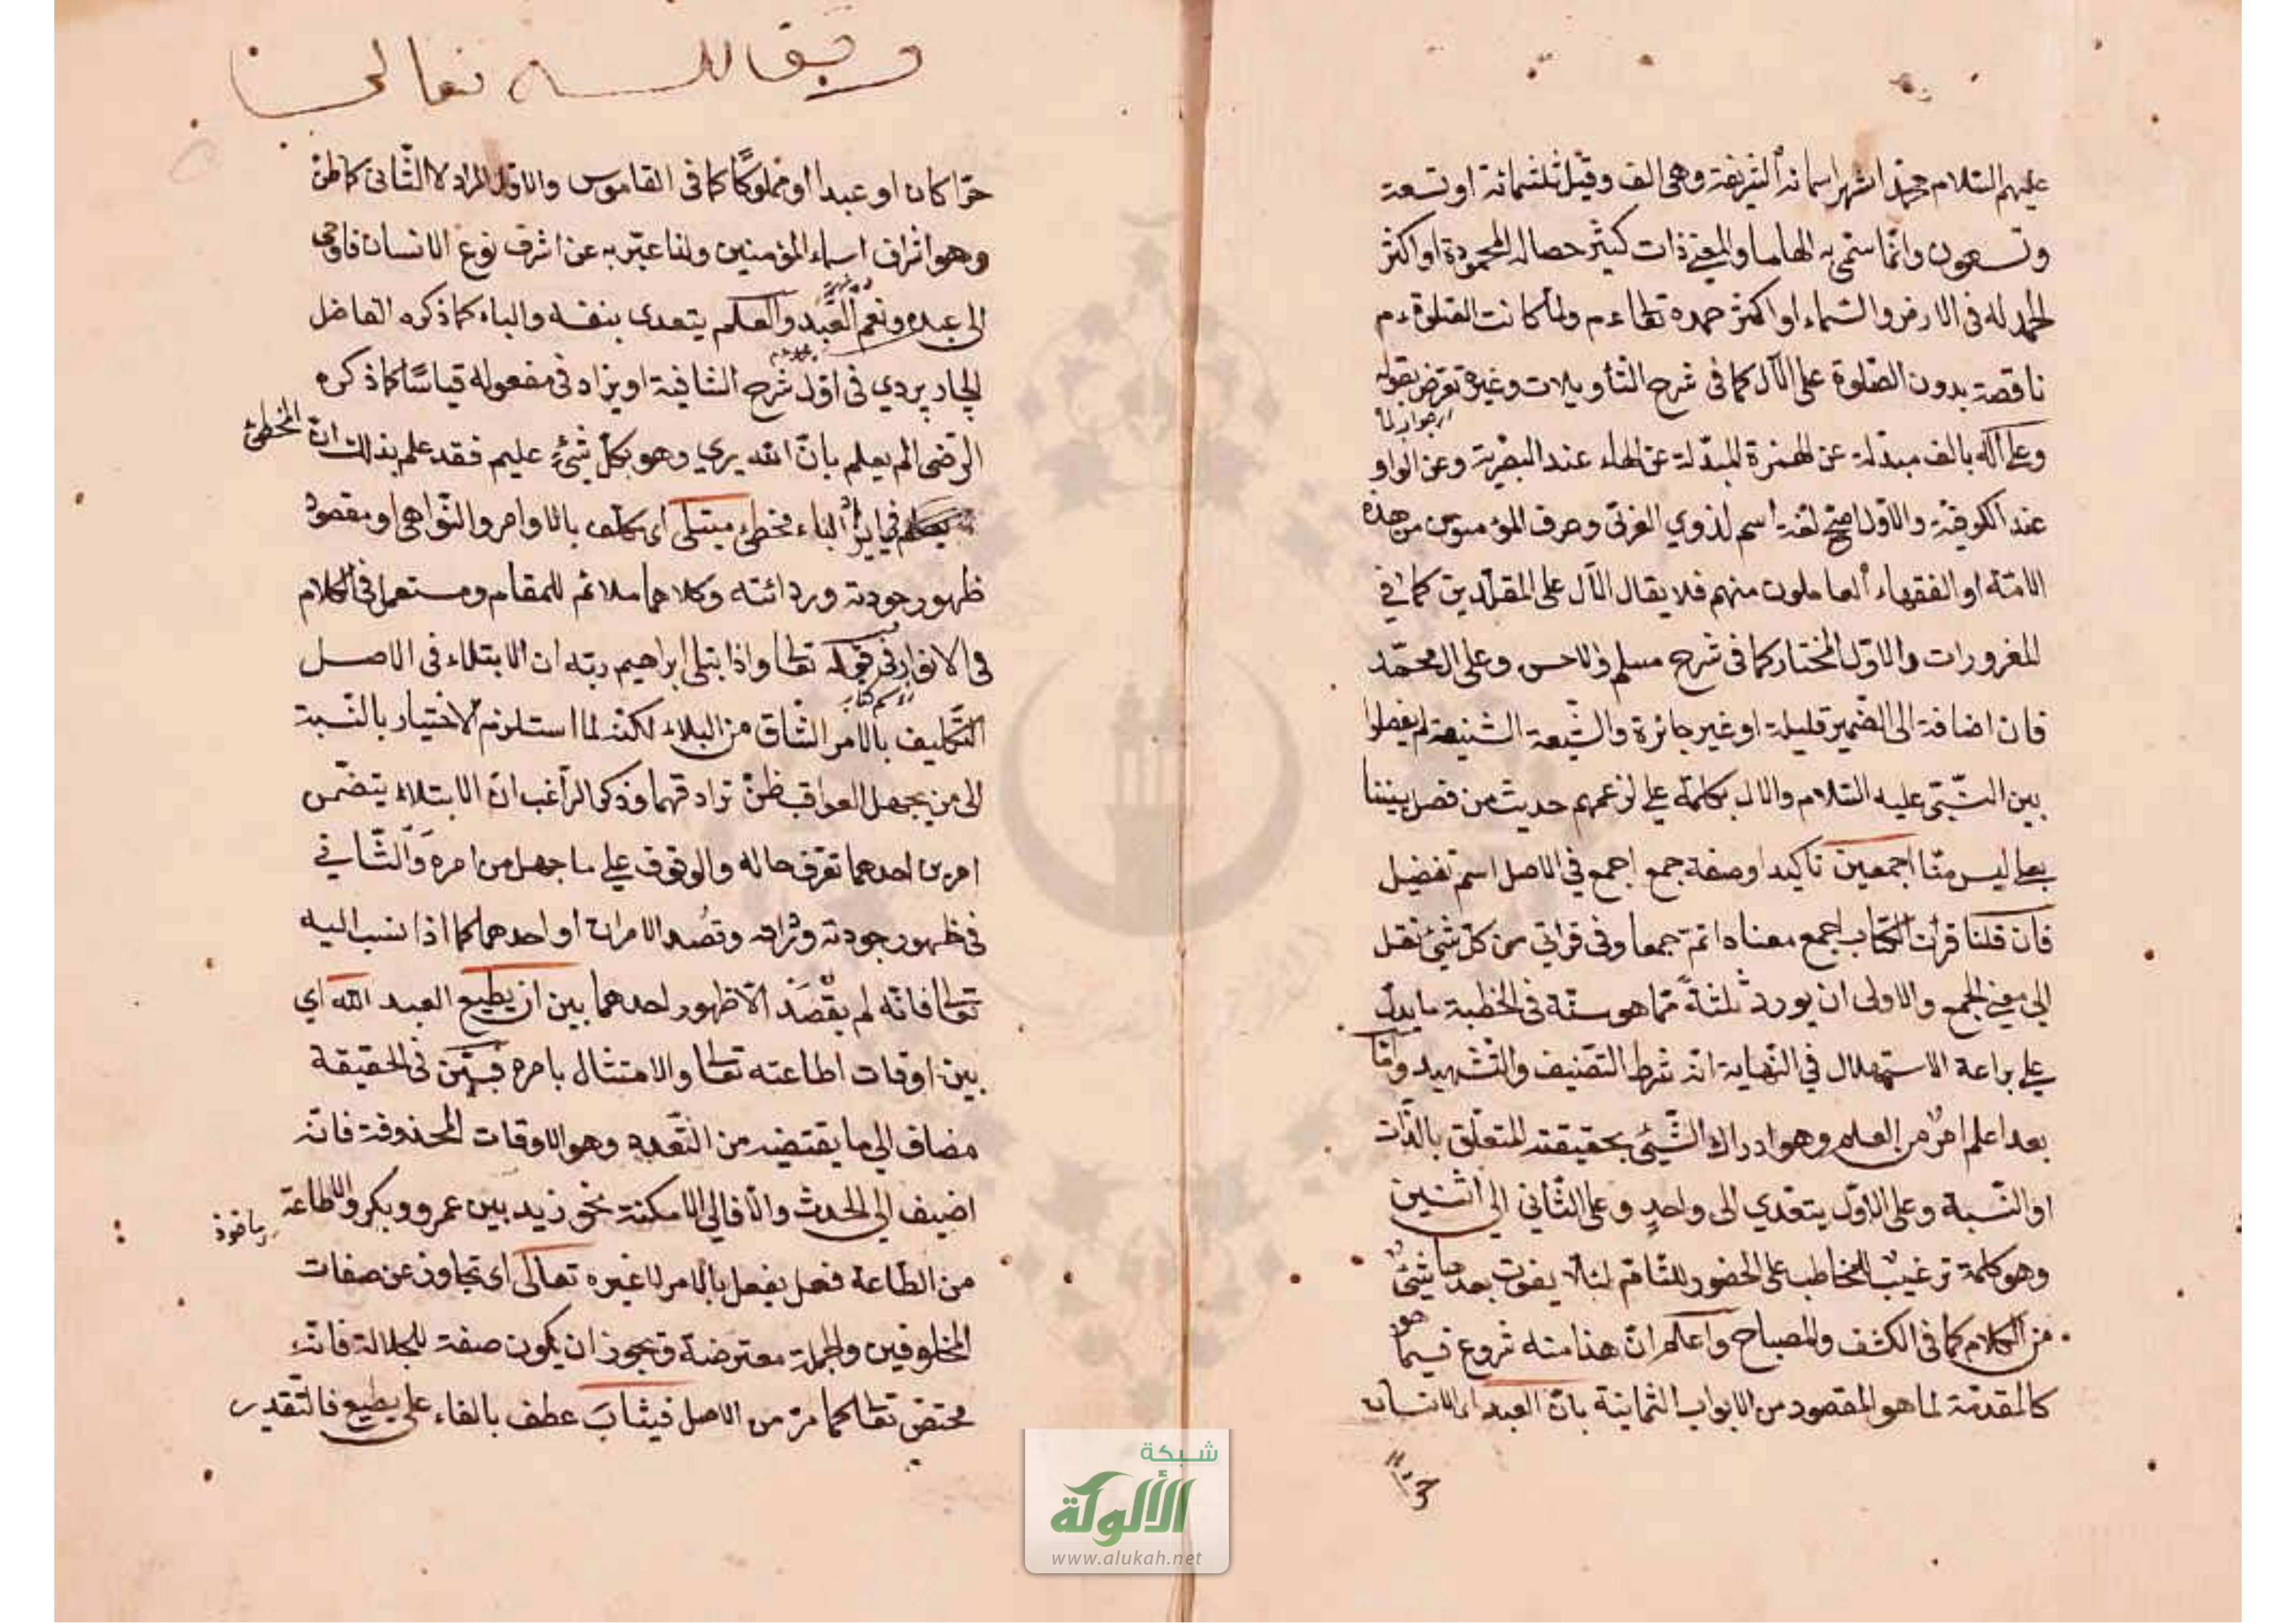 عليهم السلام محمد اشهر اسمائه الشريفة وهي الف وقيل ثلثمائة او تسعة
وتسعون وانما سمي به الهاما والمعنى ذات كثير خصاله المحمودة او اكثر
الحمد له في الارض والسماء او اكثر حمده تعالى ولما كانت الصلوة
ناقصة بدون الصلوة على الآل كما في شرح التأويلات وغيره تعرض بقوله
جواب لما
وعلى آله بالف مبدلة عن الهمزة المبدلة عن الهاء عند البصرية وعن الواو
عند الكوفية والاول اصح لغة اسم لذوي القربى وعرف المؤمنون من هذه
الامة او الفقهاء العاملون منهم فلا يقال الآل على المقلدين كما في
المفردات والاول المختار كما في شرح مسلم والاحسن وعلى ال محمد
فان اضافة الى الضمير قليلة او غير جائزة والشيعة الشنيعة لم يفصلوا
بين النبي عليه السلام والال بكلمة على لزعمهم حديث من فصل بيننا
بعلى ليس منا اجمعين تاكيد او صفة جمع اجمع في الاصل اسم تفضيل
فان قلنا قرأت الكتاب اجمع معناه اتم جمعا وفي قراتي من كل شيئ نقل
الى معنى الجمع والاولى ان يورد ثلثة مما هو سنة في الخطبة ما يدل
على براعة الاستهلال في النهاية انه شرط التصنيف والتشهيد واما
بعد اعلم امر من العلم وهو ادراك الشيئ بحقيقته المتعلق بالذات
او النسبة وعلى الاول يتعدي الى واحد وعلى الثاني الى اثنين
وهو كلمة ترغيب للمخاطب على الحضور التام لئلا يفوت بعدها شيئ
من الكلام كما في الكشف والمصباح واعلم ان هذا منه شروع فيما هو
كالمقدمة لما هو المقصود من الابواب الثمانية بان العبد اى الانسان
حرا
وقف لله تعالى
حرا كان او عبدا او مملوكا كما في القاموس والاول المراد لا الثاني كما ظن
وهو اشرف اسماء المؤمنين ولذا عبر به عن اشرف نوع الانسان فاوحى
الى عبده ونعم العبد والعلم يتعدى بنفسه والباء كما ذكره الفاضل
الچارپردي في اول شرح الشافية او يزاد في مفعوله قياسا كما ذكره
الرضى الم يعلم بان الله يرى وهو بكل شيئ عليم فقد علم بذلك ان المخطئ
فيما يزاد الباء مخطئ مبتلى اى مكلف بالاوامر والنواهى او مقصود
ظهور جودته وردائته وكلاهما ملائم للمقام ومستعمل في الكلام
في الانوار في قوله تعالى واذ ابتلى ابراهيم ربه ان الابتلاء في الاصل
اسم كتاب
التكليف بالامر الشاق من البلاء لكنه لما استلزم الاختبار بالنسبة
الى من يجهل العواقب ظن ترادفهما وذكر الراغب ان الابتلاء يتضمن
امرين احدهما تعرف حاله والوقوف على ما جهل من امره والثاني
في ظهور جودته وقصد الامران او احدهما كما اذا نسب اليه
تعالى فانه لم يقصد الا ظهور احدهما بين ان يطيع العبد الله اى
بين اوقات اطاعته تعالى والامتثال بامره فبين في الحقيقة
مضاف الى ما يقتضيه من التعدد وهو الاوقات المحذوفة فانه
اضيف الى الحدث والا فالى الامكنة نحو زيد بين عمرو وبكر والاطاعة
ماخوذ
من الطاعة فعل يفعل بالامر لا غيره تعالى اى تجاوز عن صفات
المخلوقين والجملة معترضة ويجوز ان يكون صفة للجلالة فانه
مختص تعالى كما مر من الاصل فيثاب عطف بالفاء على يطيع فالتقدير
شبكة
الألوكة
www.alukah.net